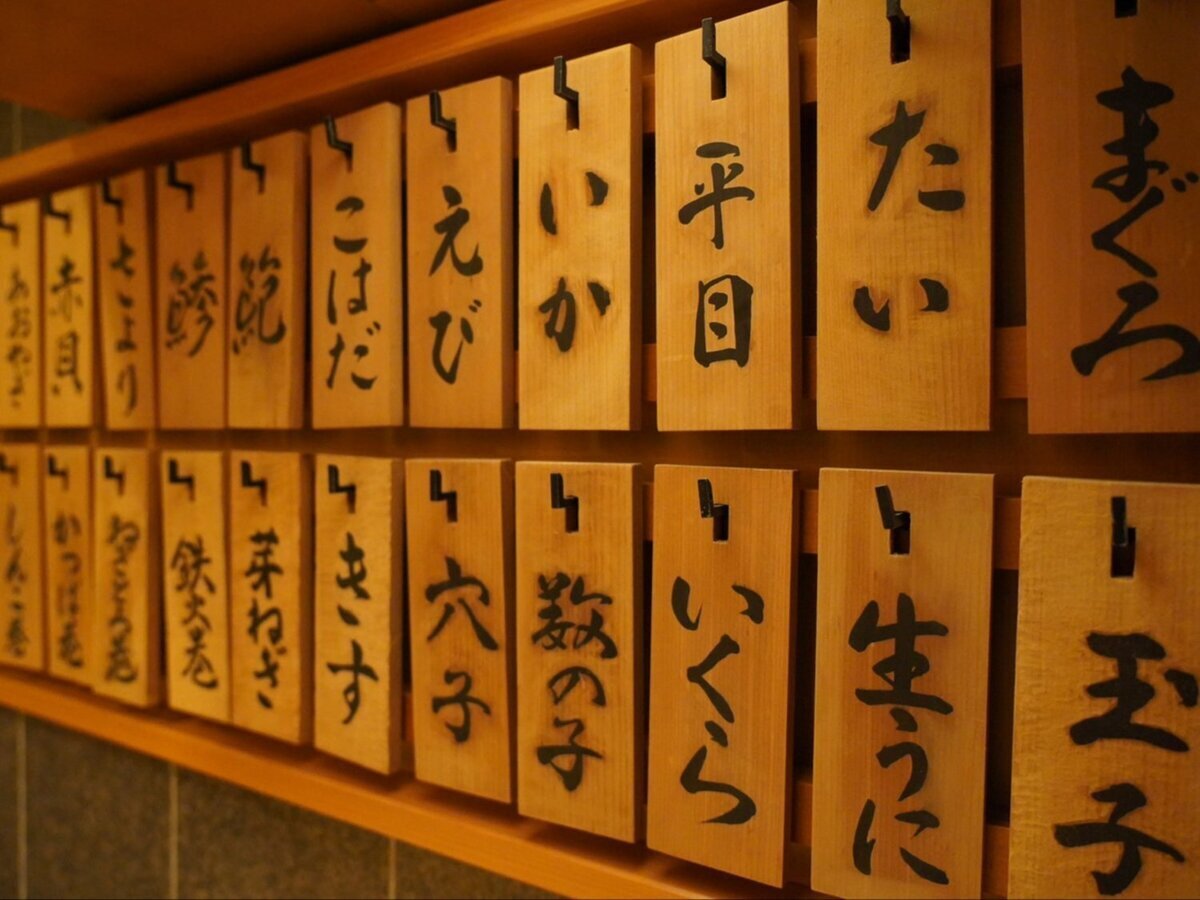 まぐろ
たい
平目
いか
えび
こはだ
鮑
鯵
さより
赤貝
あおやぎ
玉子
生うに
いくら
数の子
穴子
きす
芽ねぎ
鉄火巻
ねぎとろ巻
かっぱ巻
しんこ巻